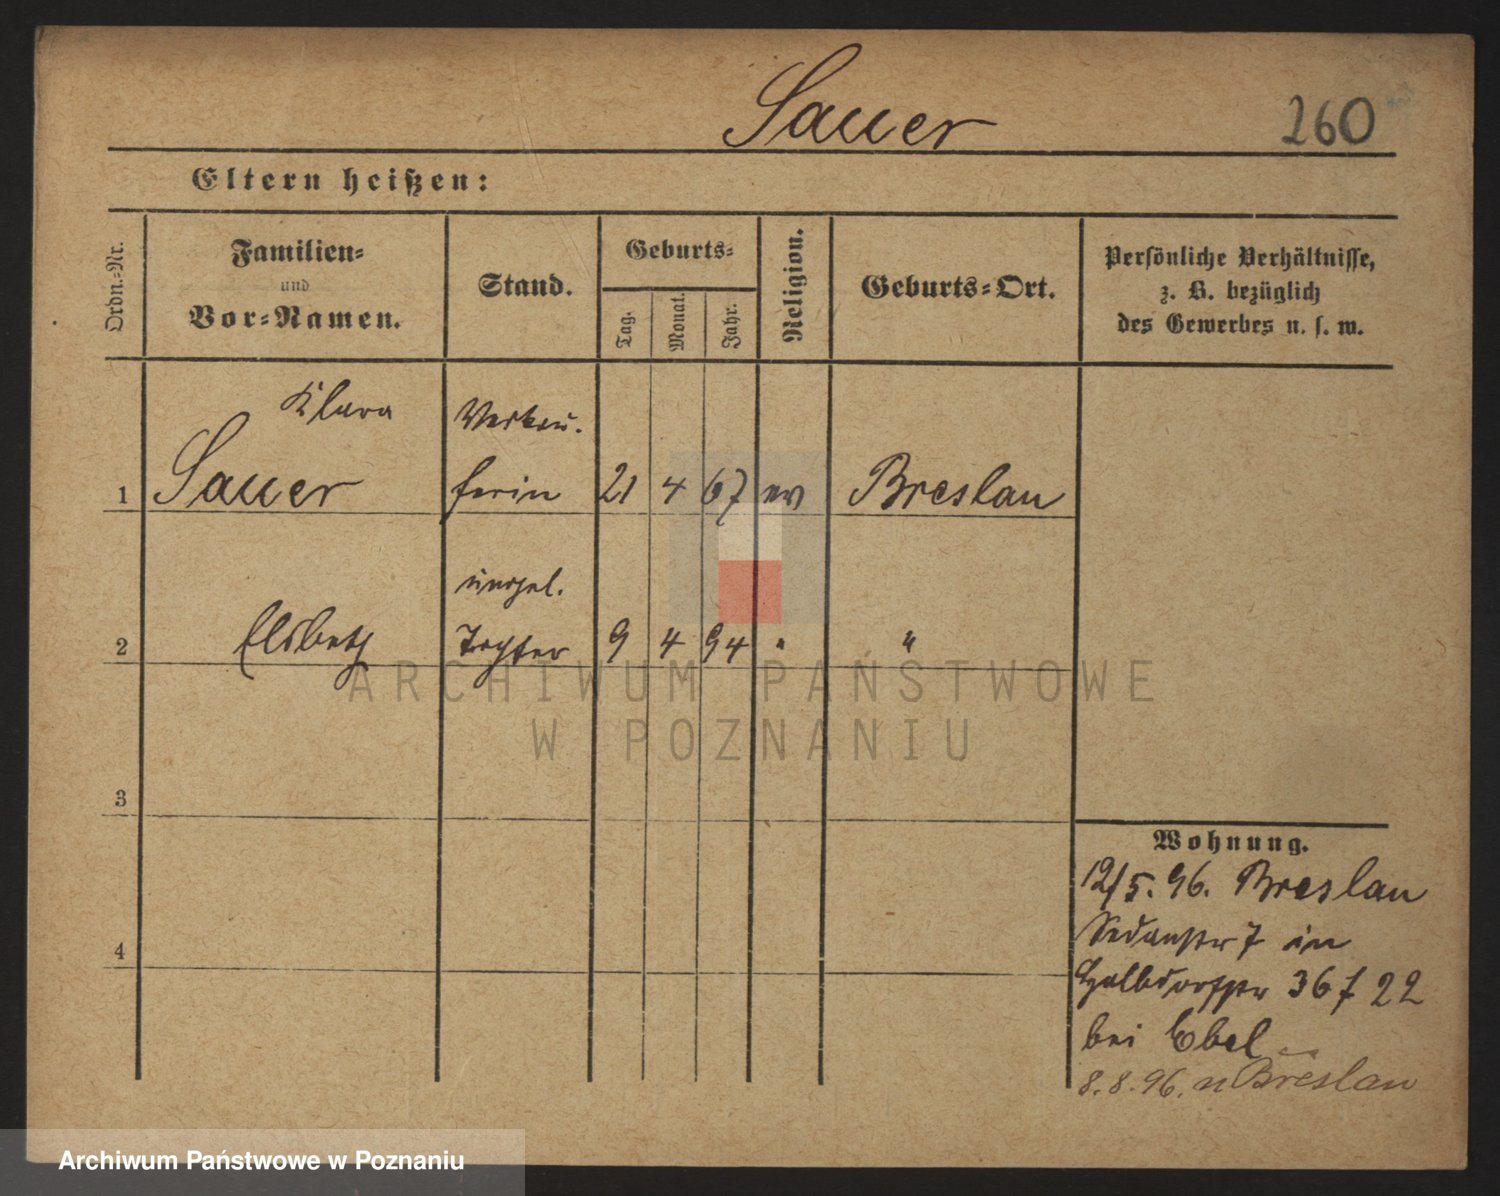 Sauer 260
Eltern heißen:
Ordn.-Nr.
Familien-
und
Vor-Namen.
Stand.
Geburts-
Tag.
Monat.
Jahr.
Religion.
Geburts-Ort.
Persönliche Verhältnisse,
z. B. bezüglich
des Gewerbes u. s. w.
Klara Verkäu.
1 Sauer ferin 21 4 67 ev Breslau
unehel.
2 Elsbeth Tochter 9 4 94 " "
ARCHIWUM PAŃSTWOWE
W POZNANIU
3
4
Wohnung.
12/5. 96. Breslau
Sedanstr 7 in
Halbdorfstr 36 f 22
bei Ebel
8.8.96. n Breslau
Archiwum Państwowe w Poznaniu